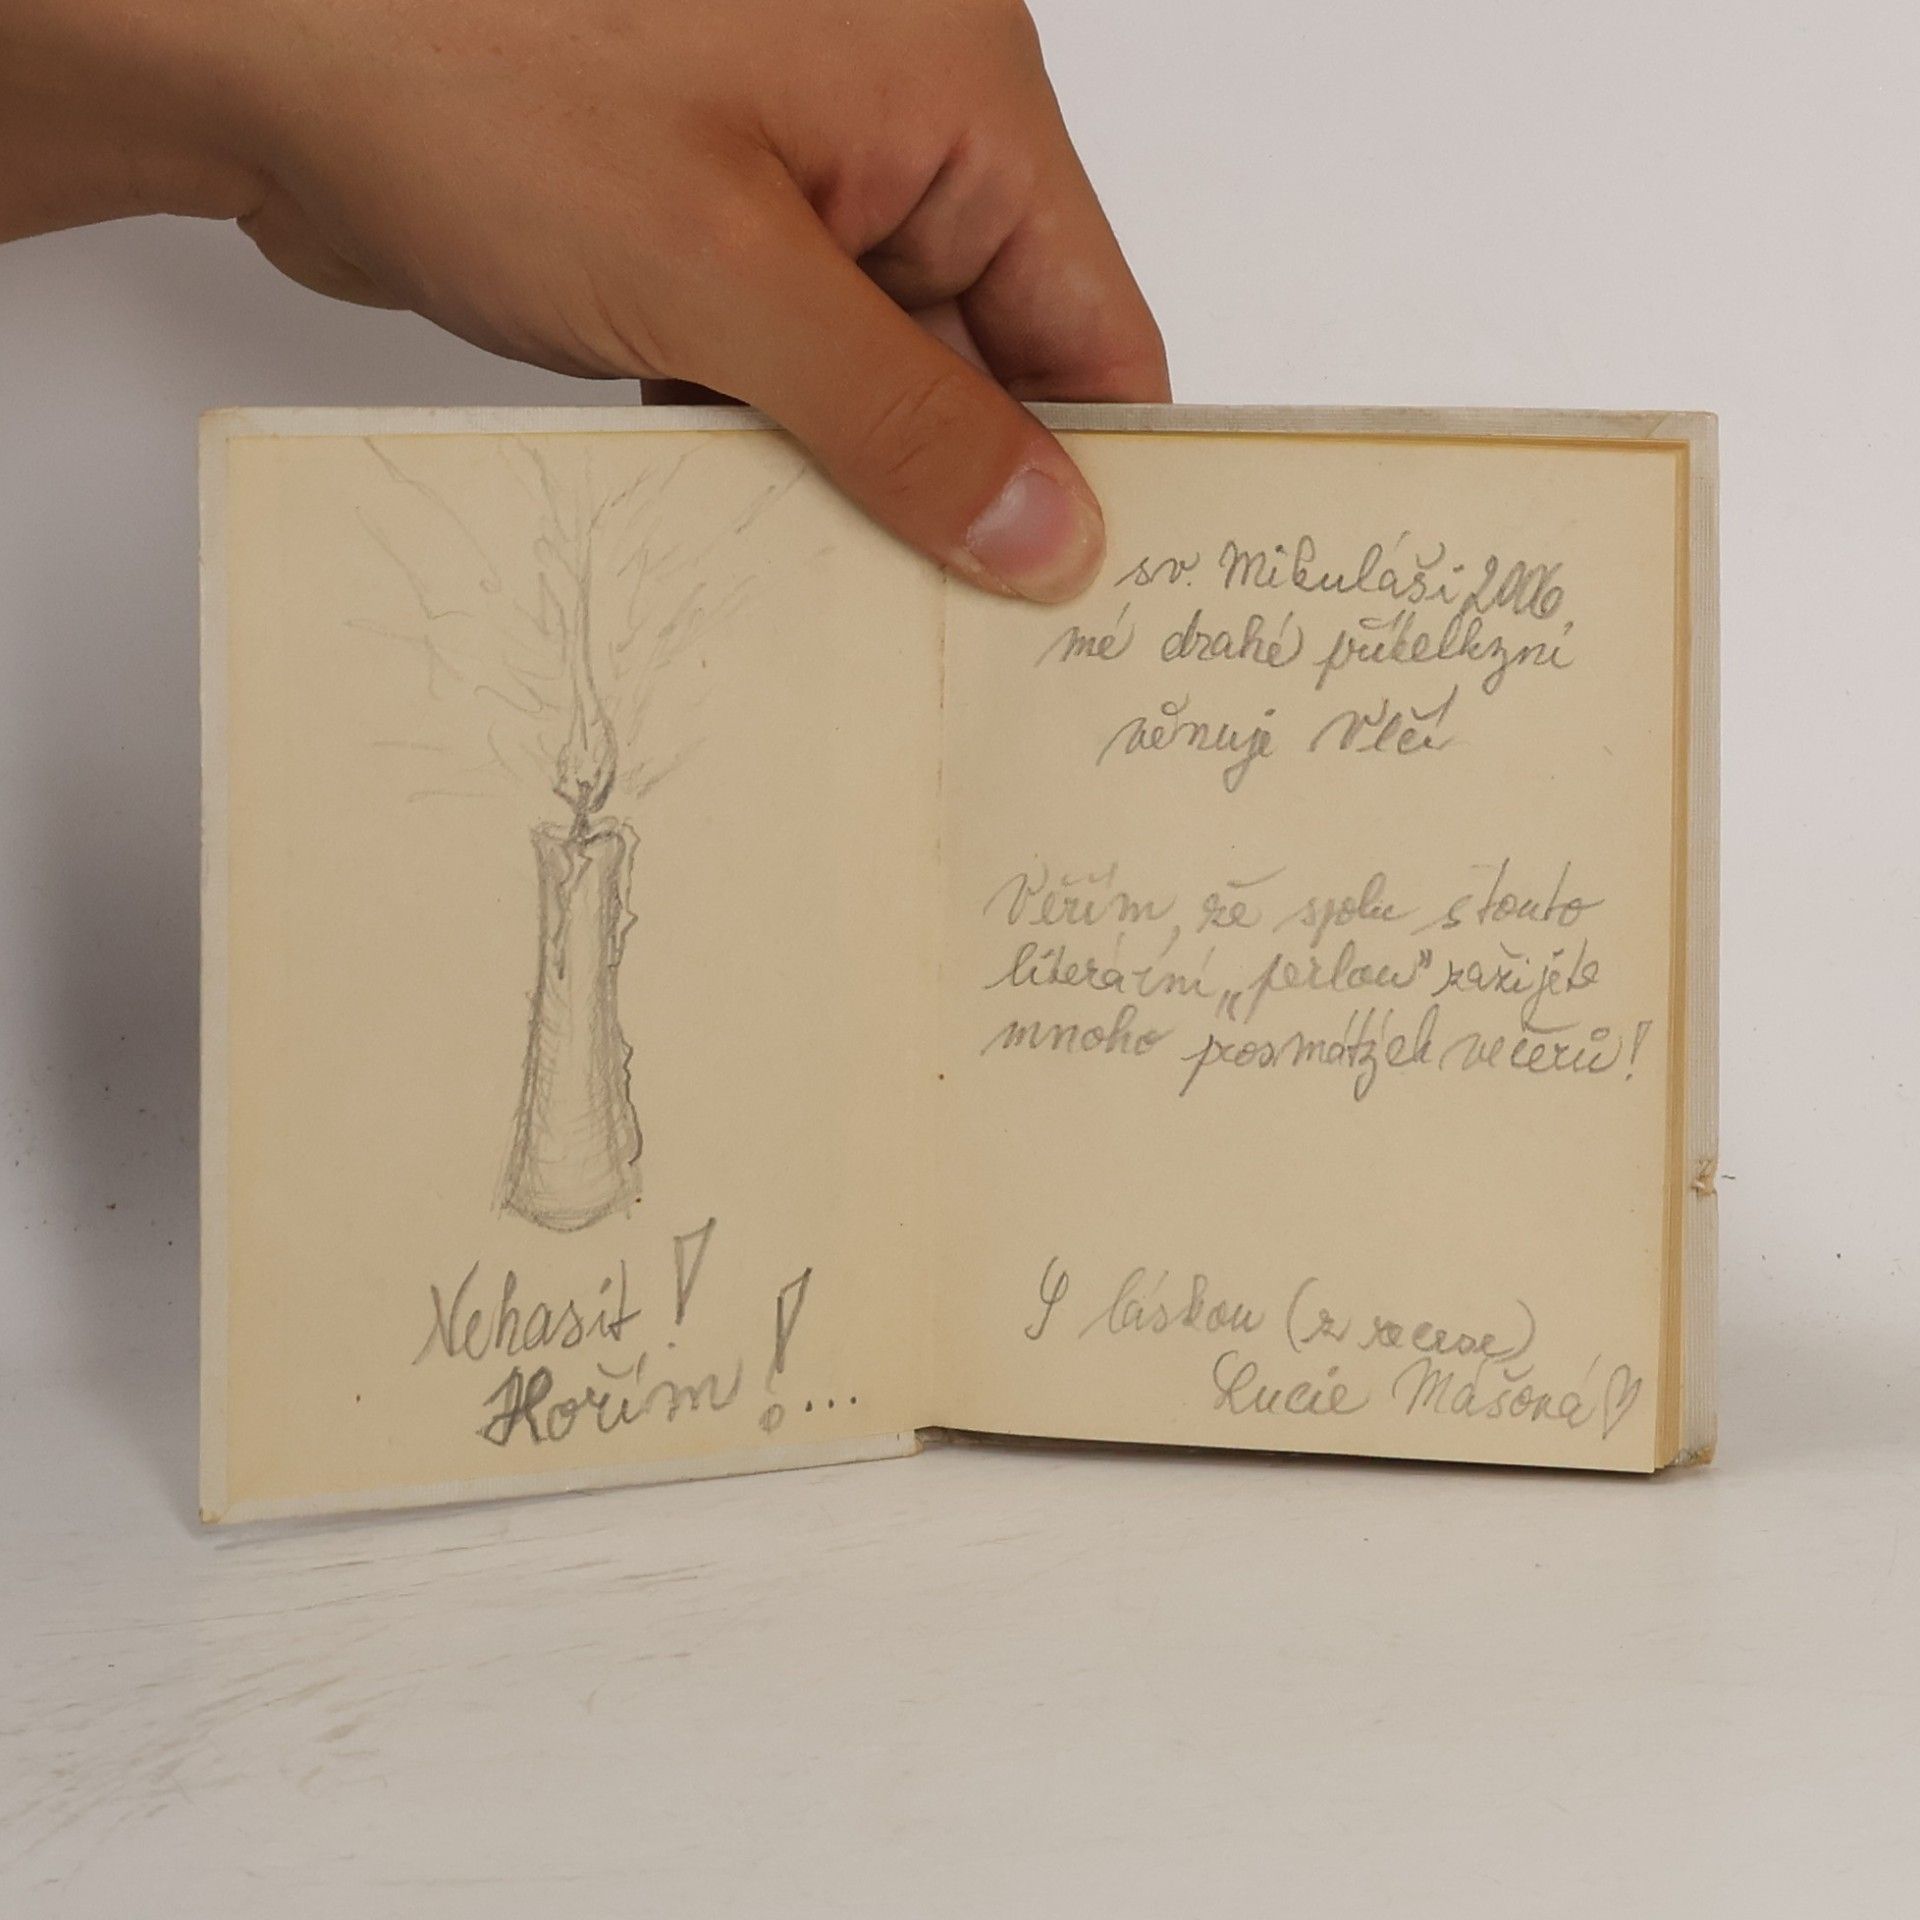 Nehasit!
Hořím!...
sv. Mikuláši 2006
mé drahé
věnuje Vlčí
Věřím, že spolu s touto
literární „perlou" zažijete
mnoho večerů!
S láskou (z recese)
Lucie Mášová